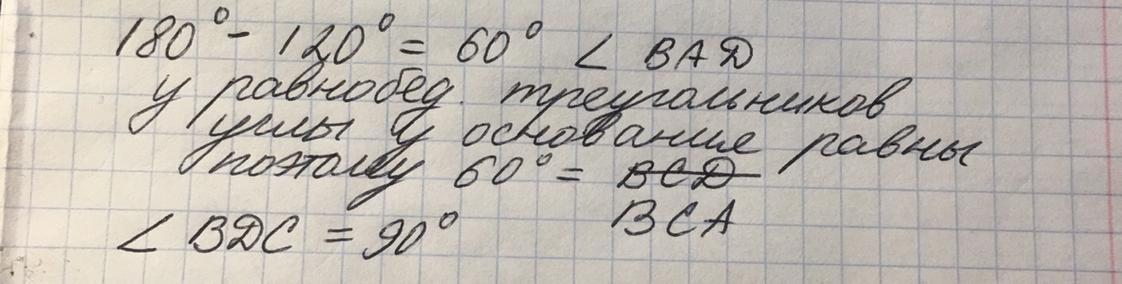 180° - 120° = 60° ∠ BAD
у равнобед. треугольников
углы у основание равны
поэтому 60° = BCD
BCA
∠ BDC = 90°